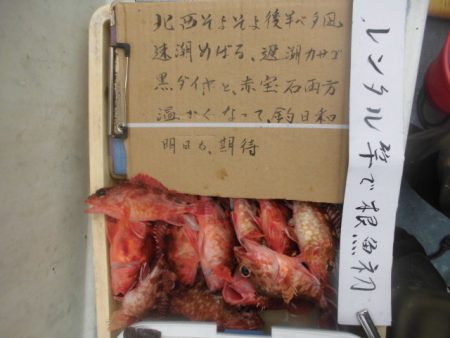 北西そよそよ後半ベタ凪
速潮めばる、遅潮カサゴ
黒ダイヤと、赤宝石両方
温かくなって、釣日和
明日も、期待
レンタル竿で根魚初